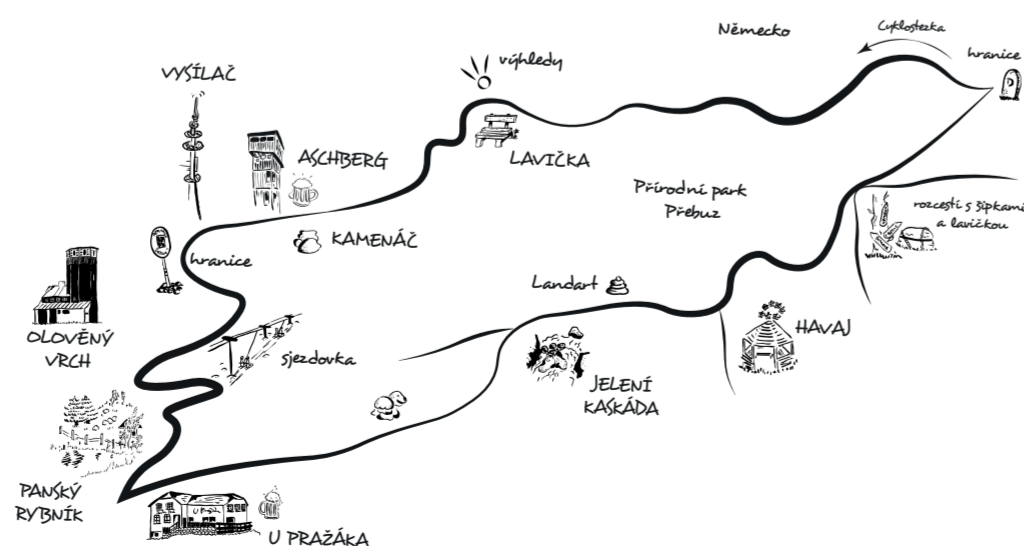 Německo
Cyklostezka
hranice
výhledy
VYSÍLAČ
LAVIČKA
ASCHBERG
Přírodní park
Přebuz
rozcestí s šipkami
a lavičkou
KAMENÁČ
hranice
Landart
HAVAJ
OLOVĚNÝ
VRCH
sjezdovka
JELENÍ
KASKÁDA
PANSKÝ
RYBNÍK
U PRAŽÁKA